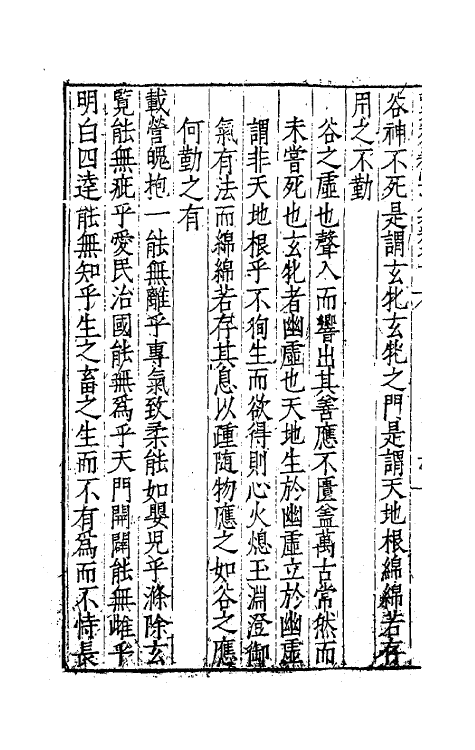 谷神不死是謂玄牝玄牝之門是謂天地根綿綿若存
用之不勤
谷之虛也聲入而響出其善應不匱蓋萬古常然而
未嘗死也玄牝者幽虛也天地生於幽虛立於幽虛
謂非天地根乎不狥生而欲得則心火熄玉淵澄御
氣有法而綿綿若存其息以踵隨物應之如谷之應
何勤之有
載營魄抱一能無離乎專氣致柔能如嬰兒乎滌除玄
覽能無疵乎愛民治國能無爲乎天門開闔能無雌乎
明白四達能無知乎生之畜之生而不有爲而不恃長